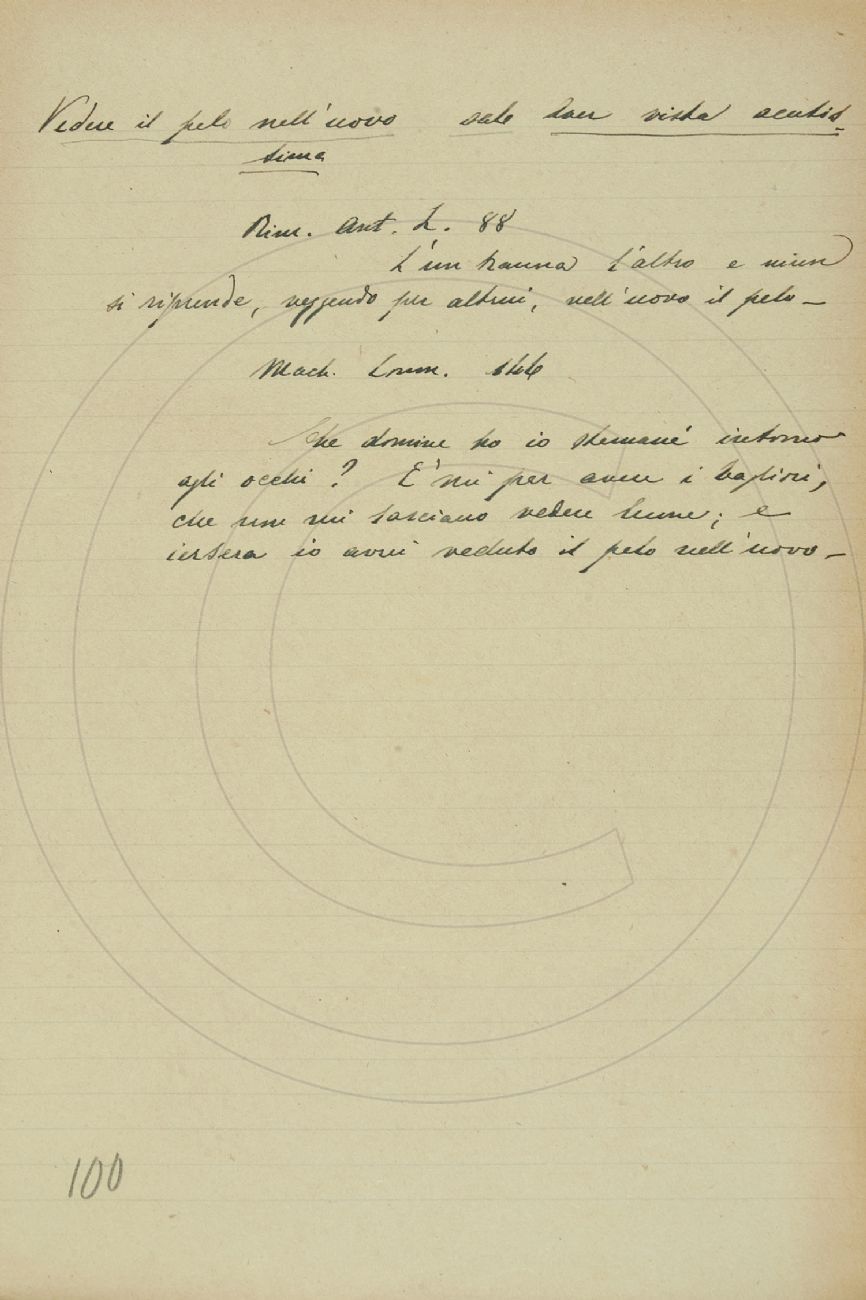 Vedere il pelo nell'uovo vale aver vista acutis=
sima
Rim. Ant. L. 88
L'un hanna l'altro e niun
si riprende, veggendo per altrui, nell'uovo il pelo—
Mach. Comm.
Che domine ho io stamane intorno
agli occhi? E' mi par avere i bagliori,
che non mi lasciano vedere lume; e
iersera io avrei veduto il pelo nell'uovo—
100